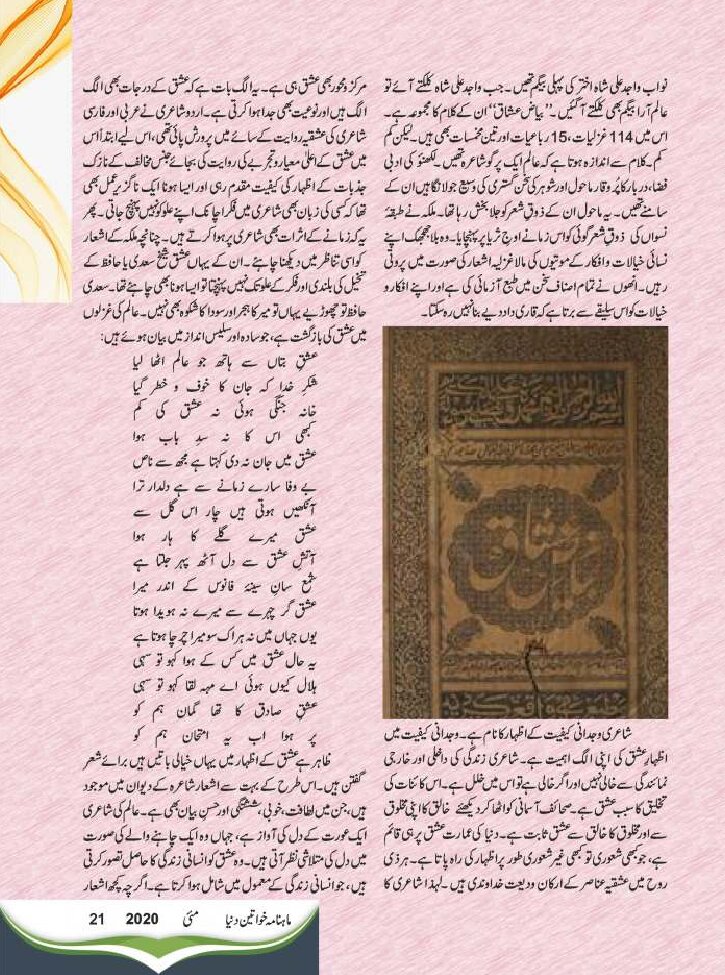 نواب واجد علی شاہ اختر کی پہلی بیگم تھیں۔ جب واجد علی شاہ کلکتے آئے تو
عالم آرا بیگم بھی کلکتے آگئیں۔ ’’بیاض عشاق‘‘ ان کے کلام کا مجموعہ ہے۔
اس میں 114 غزلیات، 15 رباعیات اور تین مخمسات بھی ہیں۔ لیکن کم
کم۔ کلام سے اندازہ ہوتا ہے کہ عالم ایک پر گو شاعرہ تھیں۔ لکھنؤ کی ادبی
فضا، دربار کا پُر وقار ماحول اور شوہر کی سخن گستری کی وسیع جولانگاہیں ان کے
سامنے تھیں۔ یہ ماحول ان کے ذوق شعر کو جلا بخش رہا تھا۔ ملکہ نے طبقۂ
نسواں کی ذوق شعر گوئی کو اس زمانے اوج ثریا پر پہنچایا۔ وہ بلا جھجھک اپنے
نسائی خیالات و افکار کے موتیوں کی مالا غزلیہ اشعار کی صورت میں پروتی
رہیں۔ انھوں نے تمام اصناف سخن میں طبع آزمائی کی ہے اور اپنے افکار و
خیالات کو اس سلیقے سے برتا ہے کہ قاری داد دیے بنا نہیں رہ سکتا۔
بیاض عشاق
شاعری وجدانی کیفیت کے اظہار کا نام ہے۔ وجدانی کیفیت میں
اظہار عشق کی اپنی الگ اہمیت ہے۔ شاعری زندگی کی داخلی اور خارجی
نمائندگی سے خالی نہیں اور اگر خالی ہے تو اس میں خلل ہے۔ اس کائنات کی
تخلیق کا سبب عشق ہے۔ صحائف آسمانی کو اٹھا کر دیکھئے خالق کا اپنی مخلوق
سے اور مخلوق کا خالق سے عشق ثابت ہے۔ دنیا کی عمارت عشق پر ہی قائم
ہے، جو بھی شعوری تو بھی غیر شعوری طور پر اظہار کی راہ پاتا ہے۔ ہر ذی
روح میں عشقیہ عناصر کے ارکان ودیعت خداوندی ہیں۔ لہٰذا شاعری کا
مرکز و محور بھی عشق ہی ہے۔ یہ الگ بات ہے کہ عشق کے درجات بھی الگ
الگ ہیں اور نوعیت بھی جدا ہوا کرتی ہے۔ اردو شاعری نے عربی اور فارسی
شاعری کی عشقیہ روایت کے سائے میں پرورش پائی تھی، اس لیے ابتداً اس
میں عشق کے اعلیٰ معیار و تجربے کی روایت کی بجائے جنس مخالف کے نازک
جذبات کے اظہار کی کیفیت مقدم رہی اور ایسا ہونا ایک ناگزیر عمل بھی
تھا کہ کسی کی زبان بھی شاعری میں فکر اچانک اپنے علو کو نہیں پہنچ جاتی۔ پھر
یہ کہ زمانے کے اثرات بھی شاعری پر ہوا کرتے ہیں۔ چنانچہ ملکہ کے اشعار
کو اسی تناظر میں دیکھنا چاہئے۔ ان کے یہاں عشق شیخ سعدی یا حافظ کے
تخیل کی بلندی اور فکر کے علو تک نہیں پہنچتا تو ایسا ہونا بھی چاہئے تھا۔ سعدی
حافظ تو چھوڑیے یہاں تو میر کا ہجر اور سودا کا شکوہ بھی نہیں۔ عالم کی غزلوں
میں عشق کی بازگشت ہے، جو سادہ اور سلیس انداز میں بیان ہوئے ہیں:
عشقِ بتاں سے ہاتھ جو عالم اٹھا لیا
شکرِ خدا کہ جان کا خوف و خطر گیا
خانہ جنگی ہوئی نہ عشق کی کم
کبھی اس کا نہ سدِ باب ہوا
عشق میں جان نہ دی کہتا ہے مجھ سے ناصح
بے وفا سارے زمانے سے ہے دلدار ترا
آنکھیں ہوتی ہیں چار اس گل سے
عشق میرے گلے کا ہار ہوا
آتشِ عشق سے دل آٹھ پہر جلتا ہے
شمع سان سینۂ فانوس کے اندر میرا
عشق گر چہرے سے میرے نہ ہویدا ہوتا
یوں جہاں میں نہ ہراک سو میرا چرچا ہوتا ہے
یہ حال عشق میں کس کے ہوا کہو تو سہی
ہلال کیوں ہوئی اے مہہ لقا کہو تو سہی
عشقِ صادق کا تھا گمان ہم کو
پر ہوا اب یہ امتحان ہم کو
ظاہر ہے عشق کے اظہار میں یہاں خیالی باتیں ہیں برائے شعر
گفتن ہیں۔ اس طرح کے بہت سے اشعار شاعرہ کے دیوان میں موجود
ہیں، جن میں لطافت، خوبی، شستگی اور حسن بیان بھی ہے۔ عالم کی شاعری
ایک عورت کے دل کی آواز ہے، جہاں وہ ایک چاہنے والے کی صورت
میں دل کی متلاشی نظر آتی ہیں۔ وہ عشق کو انسانی زندگی کا حاصل تصور کرتی
ہیں، جو انسانی زندگی کے معمول میں شامل ہوا کرتا ہے۔ اگرچہ کچھ اشعار
ماہنامہ خواتین دنیا مئی 2020 21